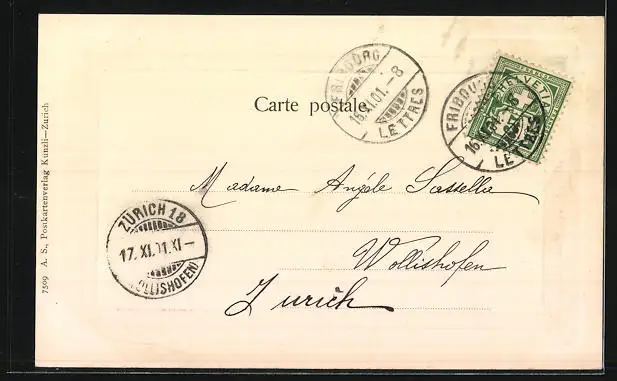 Carte postale.
FRIBOURG
16.XI.01.-8
LETTRES
FRIBOURG
LETTRES
HELVETIA
Madame Angéle Sassella
Wollishofen
Zurich
ZÜRICH 18
17.XI.01.XI-
(WOLLISHOFEN)
7509 A. S., Postkartenverlag Künzli—Zurich